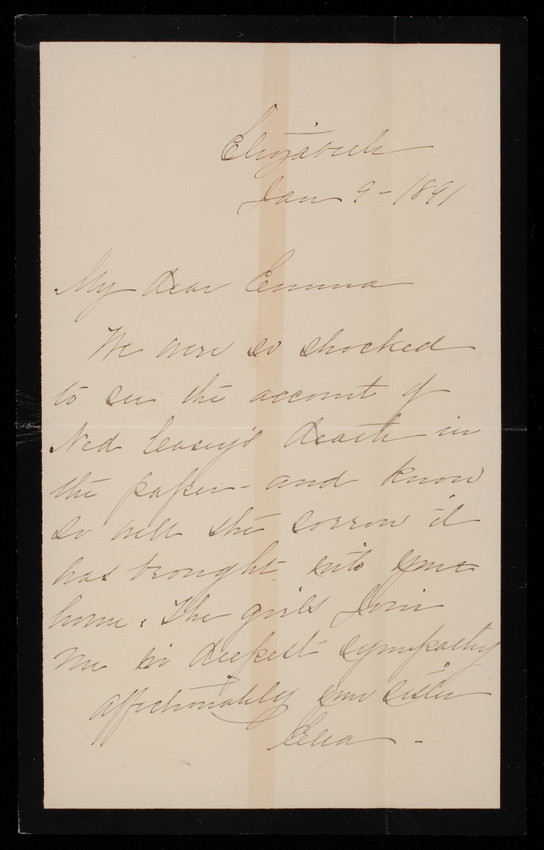 Elizabeth
Jan 9 - 1891
My dear Emma
We were so shocked
to see the account of
Ned Casey's death in
the paper - and know
so well the sorrow it
has brought into your
home. The girls Join
me in deepest sympathy
affectionately your sister